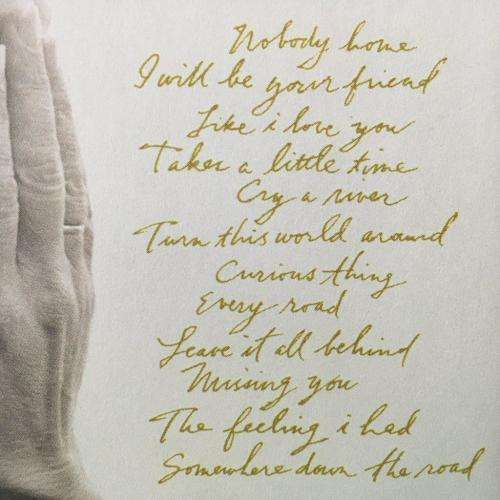 Nobody home
I will be your friend
Like i love you
Takes a little time
Cry a river
Turn this world around
Curious thing
Every road
Leave it all behind
Missing you
The feeling i had
Somewhere down the road